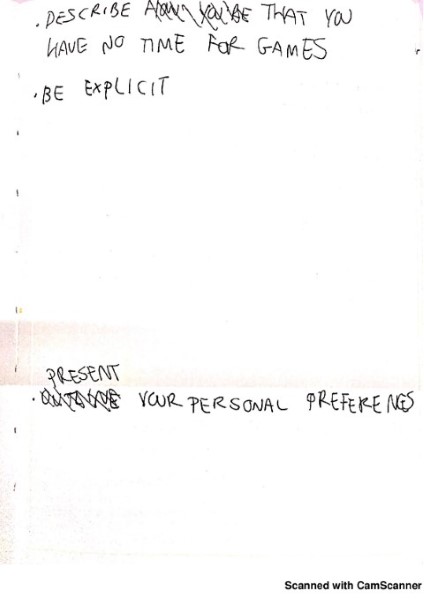 . DESCRIBE THAT YOU
HAVE NO TIME FOR GAMES
. BE EXPLICIT
PRESENT
. YOUR PERSONAL PREFERENCES
Scanned with CamScanner